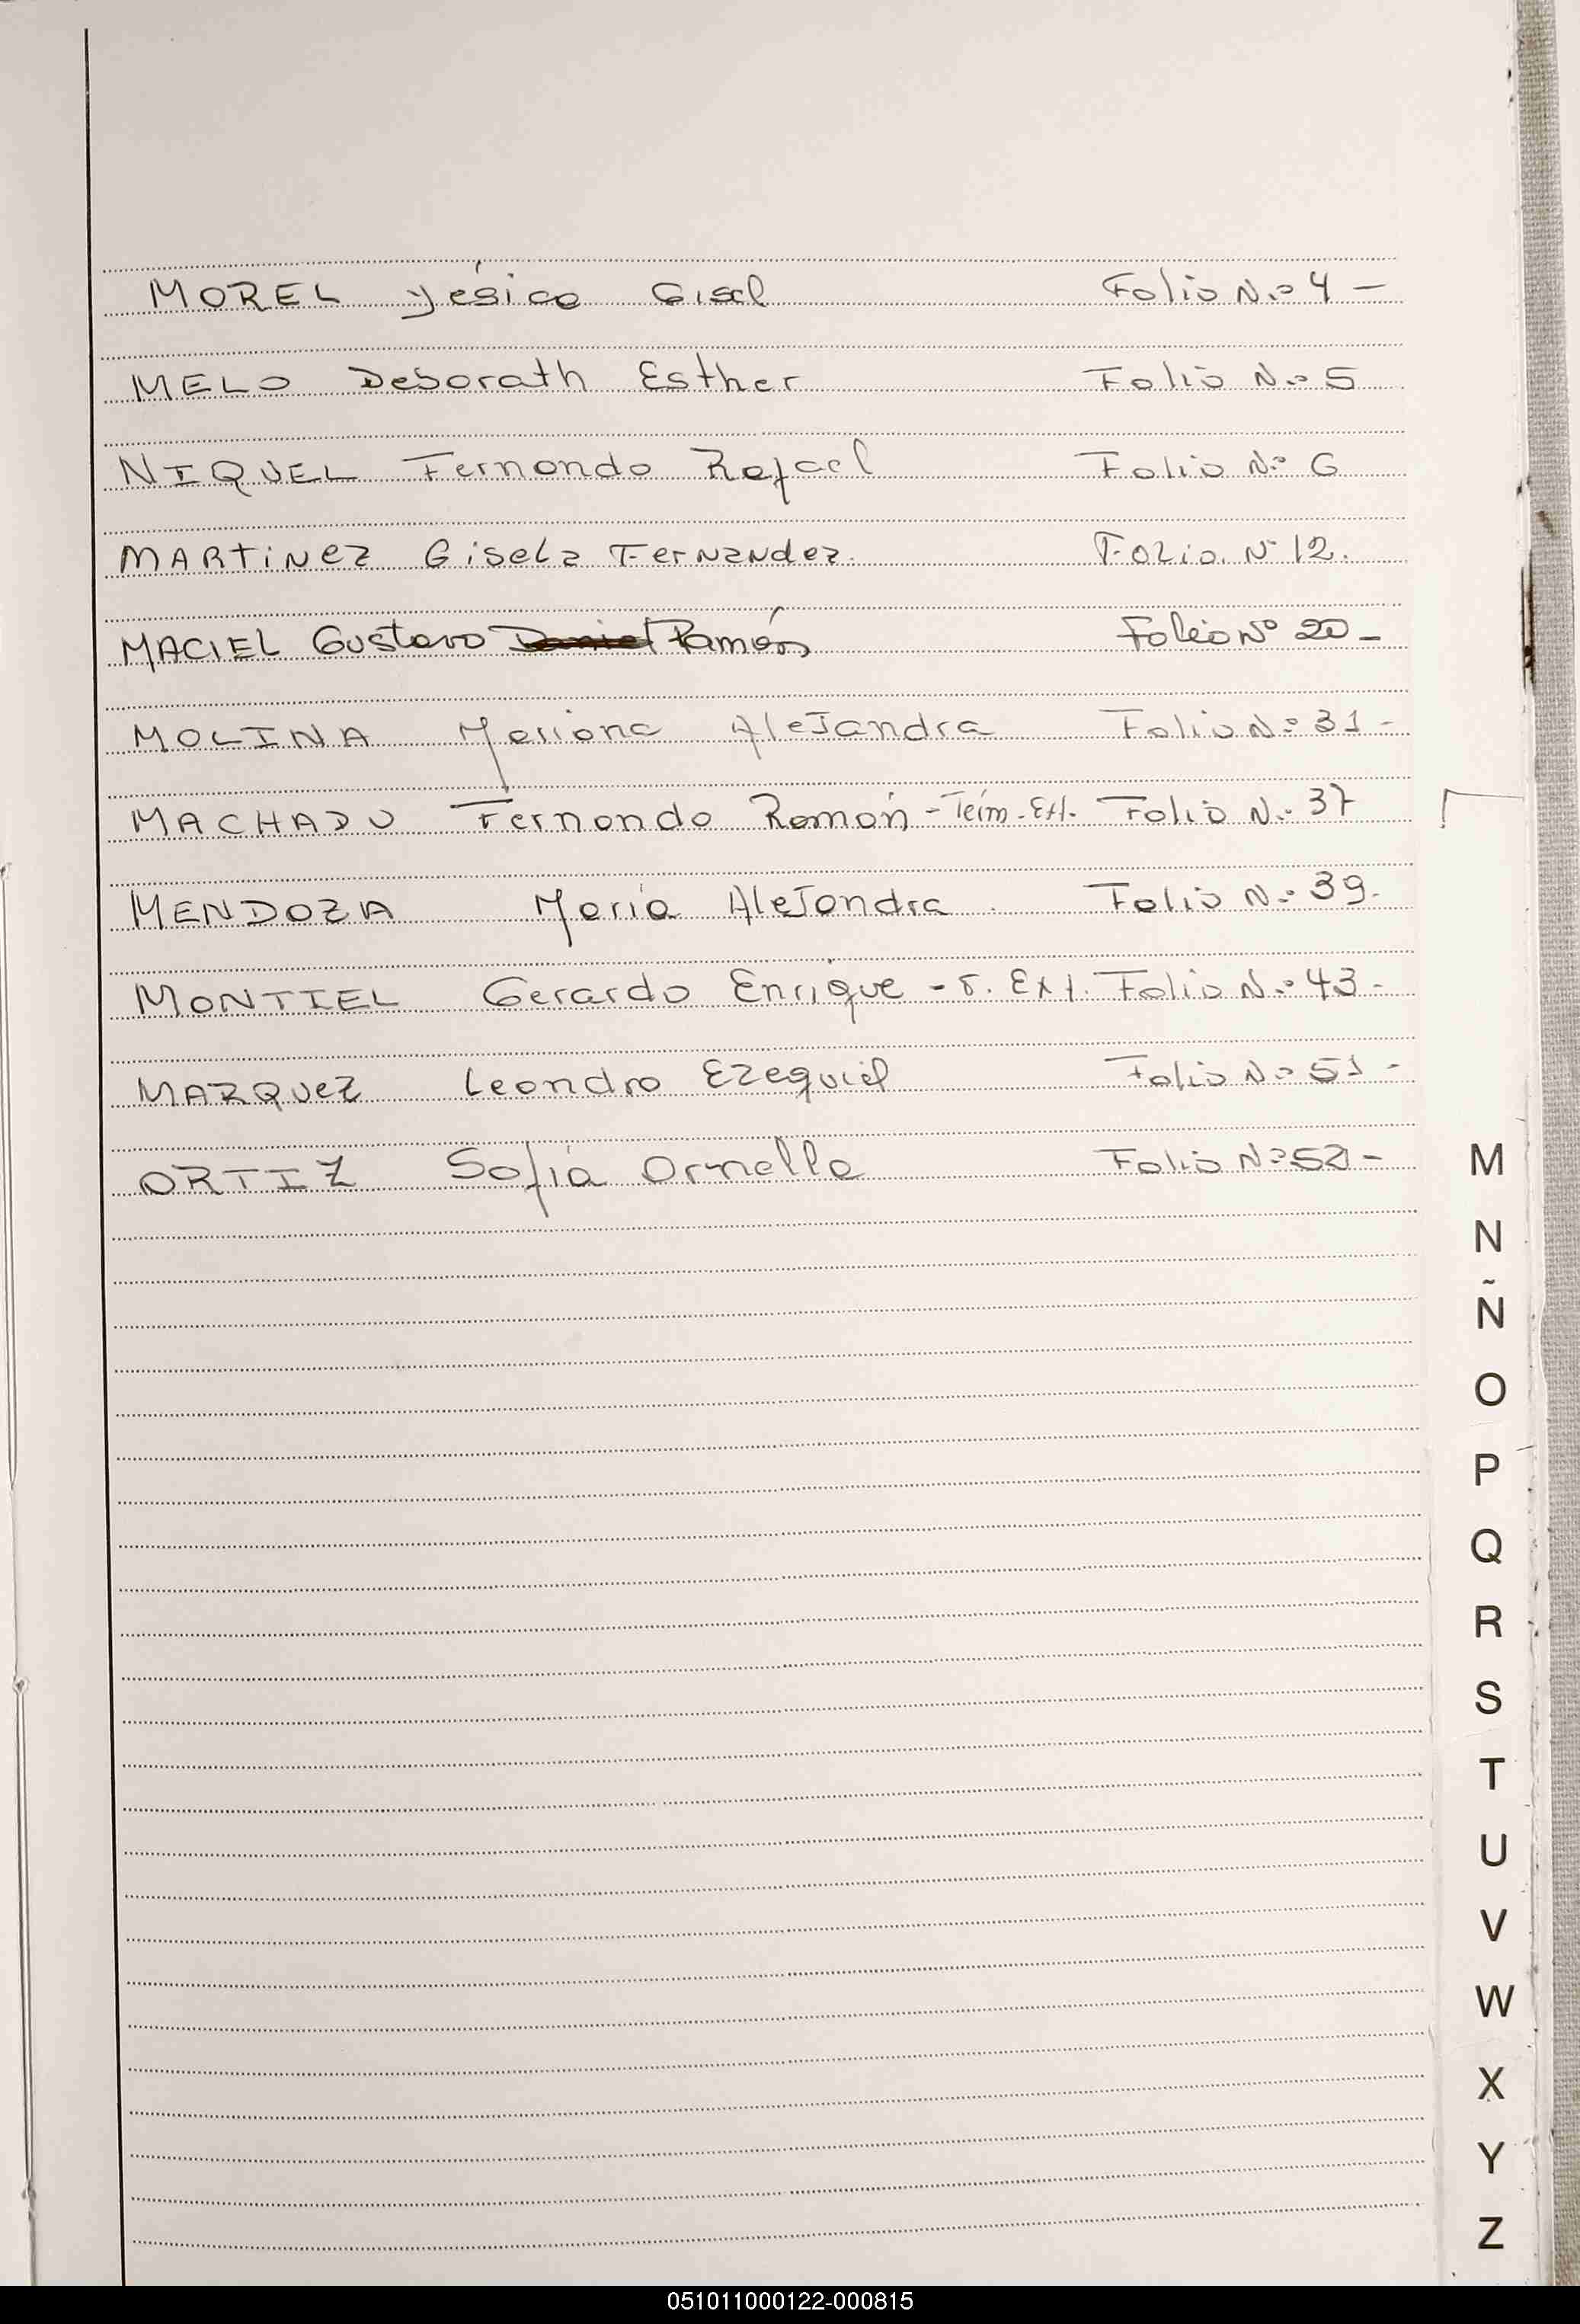 MOREL Yésica Gisel Folio N.º 4 -
MELO Deborath Esther Folio N.º 5
NIQUEL Fernando Rafael Folio N.º 6
MARTiNez Gisela Fernandez. Folio. Nº 12.
MACIEL Gustavo Daniel Ramón Folio Nº 20 -
MOLINA Mariana AleJandra Folio N.º 31 -
MACHADO Fernando Ramón - Térm. Ext. Folio N.º 37
MENDOZA María AleJandra Folio N.º 39.
MONTIEL Gerardo Enrique - T. Ext. Folio N.º 43 -
MARQUez Leandro Ezequiel Folio N.º 51 -
ORTIZ Sofía Ornella Folio Nº 52 -
M
N
Ñ
O
P
Q
R
S
T
U
V
W
X
Y
Z
051011000122-000815